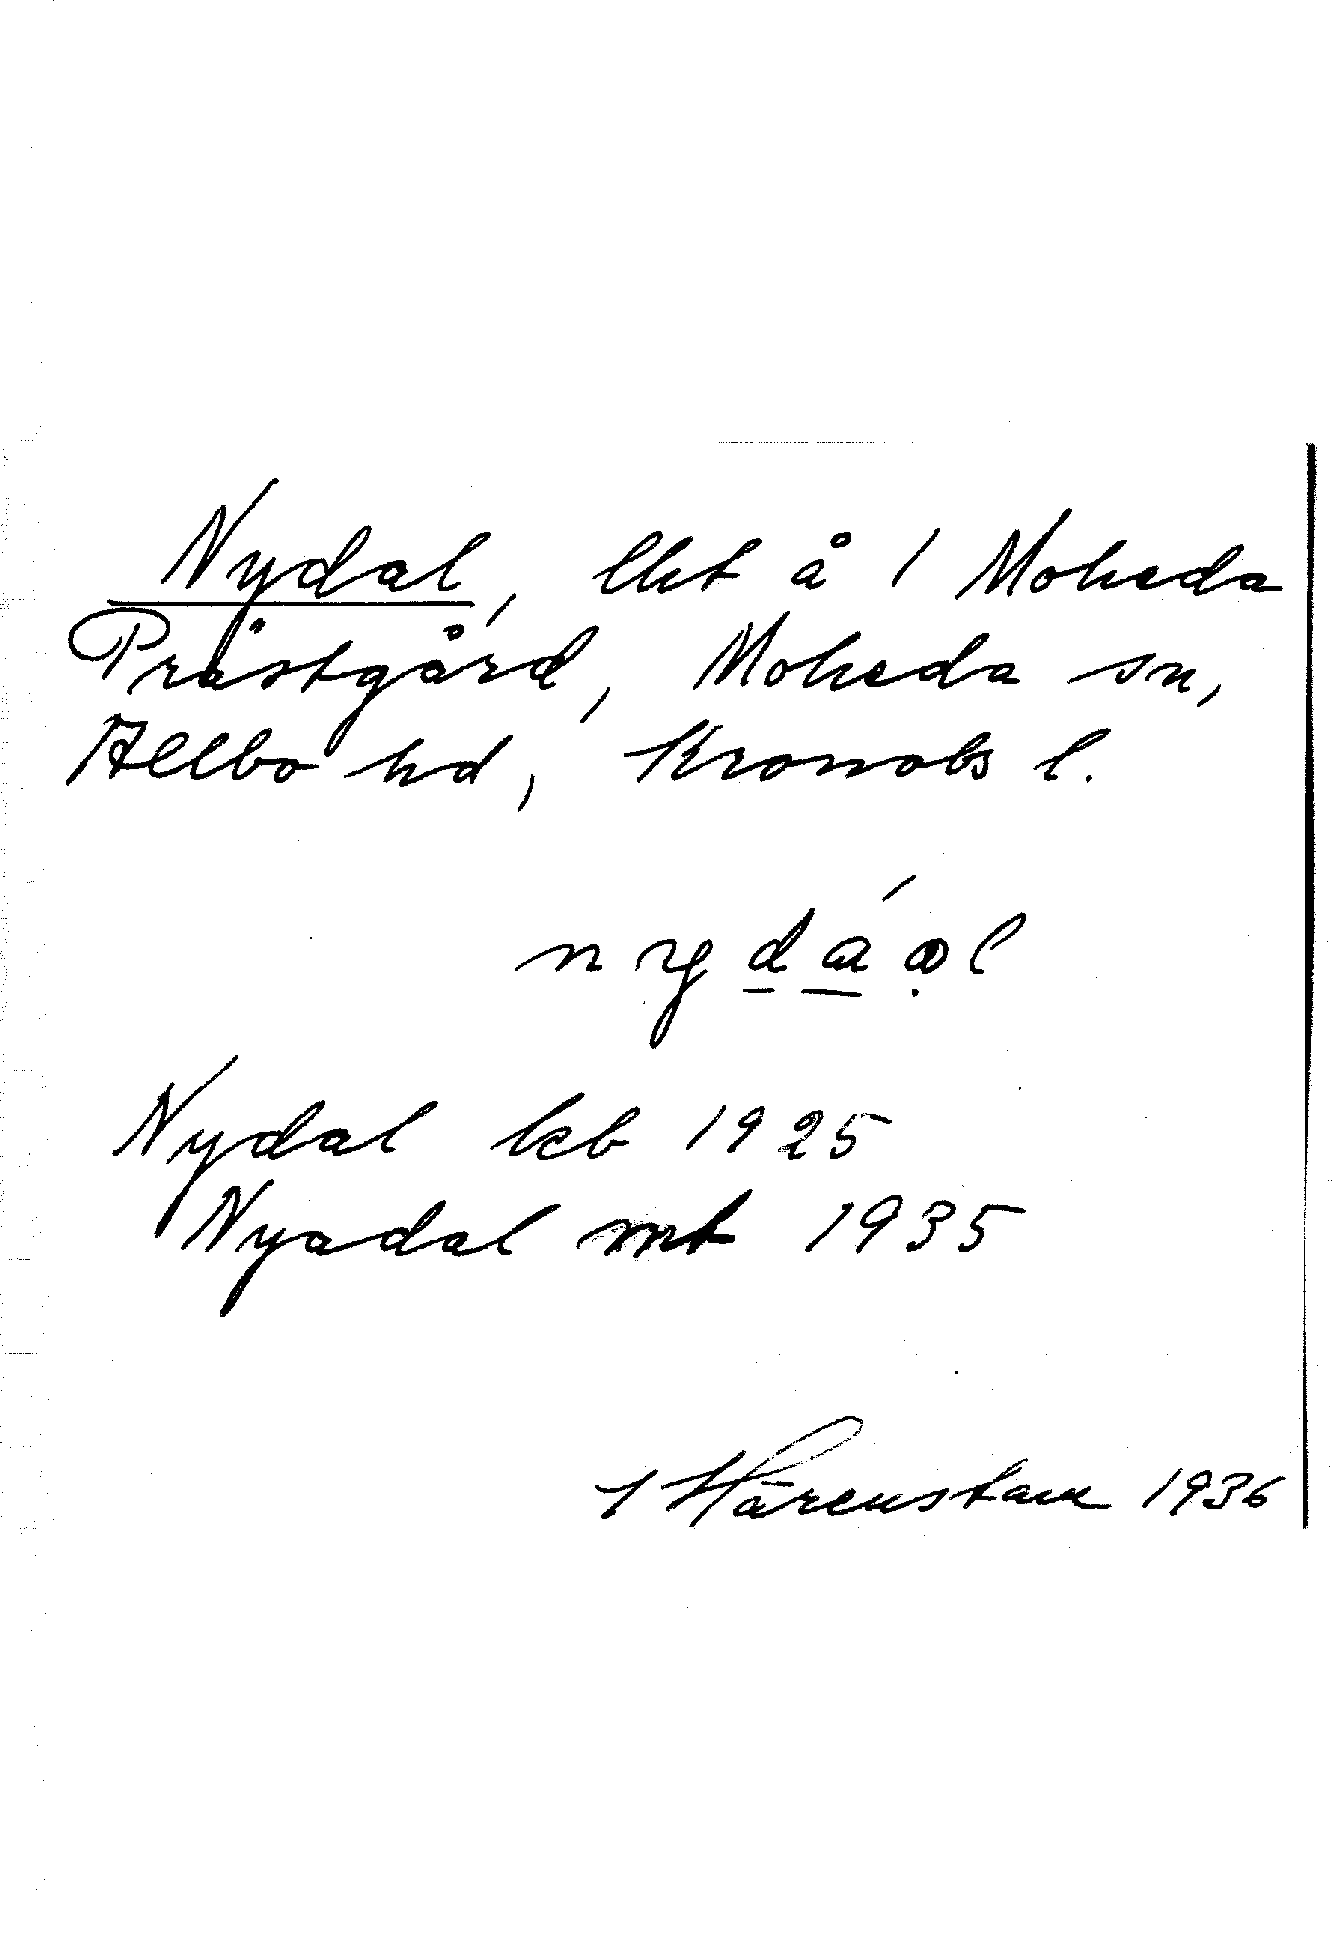 Nydal, lht å 1 Moheda
Prästgård, Moheda sn,
Allbo hd, Kronobs l.
nydáɷl
Nydal kb 1925
Nyadal mt 1935
I Härenstam 1936